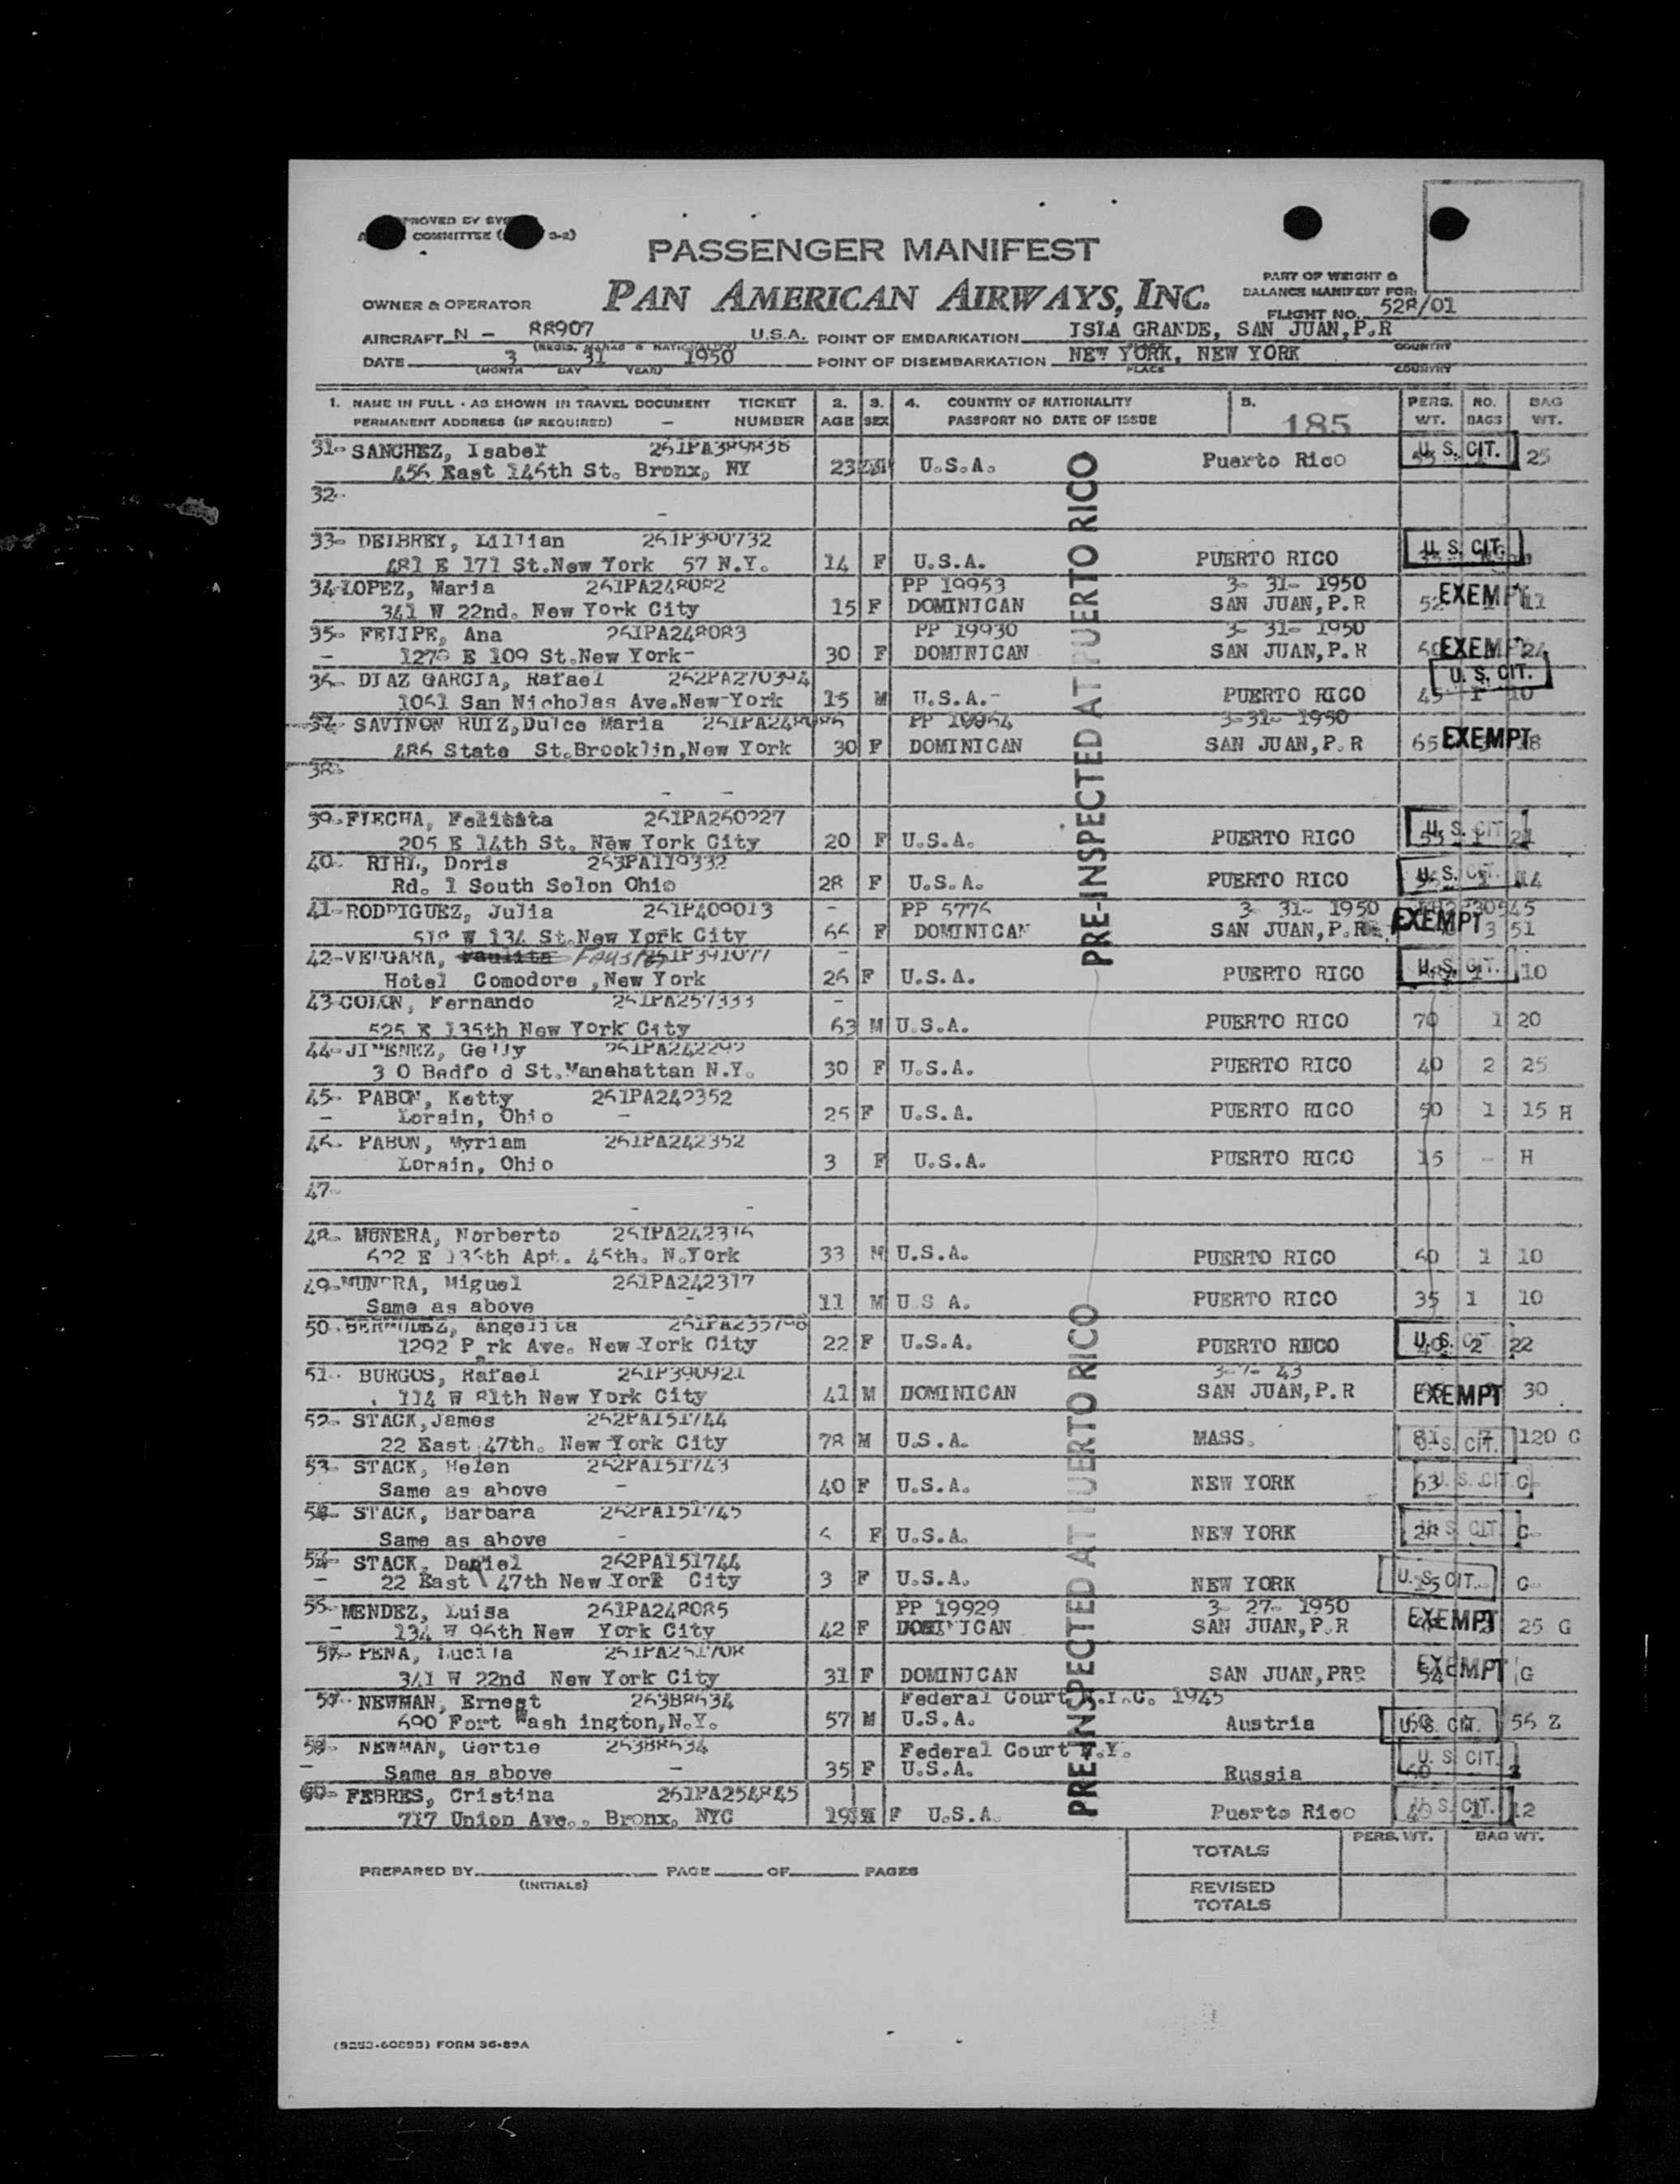 PASSENGER MANIFEST
PAN AMERICAN AIRWAYS, INC.
PART OF WEIGHT &
BALANCE MANIFEST FOR:
OWNER & OPERATOR
FLIGHT NO. 528/01
AIRCRAFT N - 88907 U.S.A. POINT OF EMBARKATION ISLA GRANDE, SAN JUAN, P.R
DATE 3 31 1950 POINT OF DISEMBARKATION NEW YORK, NEW YORK
(MONTH DAY YEAR) PLACE COUNTRY
1. NAME IN FULL - AS SHOWN IN TRAVEL DOCUMENT TICKET 2. 3. 4. COUNTRY OF NATIONALITY 5. PERS. NO. BAG
PERMANENT ADDRESS (IF REQUIRED) — NUMBER AGE SEX PASSPORT NO DATE OF ISSUE 185 WT. BAGS WT.
31- SANCHEZ, Isabel 261PA389838
456 East 146th St. Bronx, NY 23 U.S.A. Puerto Rico U. S. CIT. 25
32-
33- DELBREY, Lillian 261P390732
481 E 171 St. New York 57 N.Y. 14 F U.S.A. PUERTO RICO U. S. CIT.
34- LOPEZ, Maria 261PA248082 PP 19953 3- 31- 1950
341 W 22nd. New York City 15 F DOMINICAN SAN JUAN, P.R 52 EXEMPT 11
35- FELIPE, Ana 261PA248083 PP 19930 3- 31- 1950
E 109 St. New York- 30 F DOMINICAN SAN JUAN, P.R EXEMPT 24
36- DIAZ GARCIA, Rafael 262PA270394
1061 San Nicholas Ave. New York 15 M U.S.A.- PUERTO RICO 45 1 10 U. S. CIT.
37- SAVINON RUIZ, Dulce Maria PP 19964 3-31- 1950
486 State St. Brooklin, New York 30 F DOMINICAN SAN JUAN, P.R 65 EXEMPT
38-
39- FLECHA, 261PA260227
205 E 14th St. New York City 20 F U.S.A. PUERTO RICO 55 1 21 U. S. CIT.
40- RIHL, Doris 263PA119332
Rd. 1 South Solon Ohio 28 F U.S.A. PUERTO RICO U. S. CIT. 14
41- RODRIGUEZ, Julia 261P409013 PP 5776 3- 31- 1950
W 134 St. New York City 66 F DOMINICAN SAN JUAN, P.R EXEMPT 3 51
42- VERGARA, Paulita 261P391077
Hotel Comodore, New York 26 F U.S.A. PUERTO RICO U. S. CIT. 10
43- COLON, Fernando 261PA257333
525 E 135th New York City 63 M U.S.A. PUERTO RICO 70 1 20
44- JIMENEZ, Gelly 261PA242292
3 0 Bedfo d St. Manahattan N.Y. 30 F U.S.A. PUERTO RICO 40 2 25
45- PABON, Ketty 261PA242352
Lorain, Ohio 25 F U.S.A. PUERTO RICO 50 1 15 H
46- PABON, Myriam 261PA242352
Lorain, Ohio 3 F U.S.A. PUERTO RICO 15 - H
47-
48- MUNERA, Norberto 261PA242316
622 E 136th Apt. 45th. N.York 33 M U.S.A. PUERTO RICO 60 1 10
49- MUNERA, Miguel 261PA242317
Same as above 11 M U.S A. PUERTO RICO 35 1 10
50- BERMUDEZ, Angelita
1292 Park Ave. New York City 22 F U.S.A. PUERTO RUCO U. S. CIT. 2 22
51- BURGOS, Rafael 261P390921 3-7- 43
114 W 81th New York City 41 M DOMINICAN SAN JUAN, P.R EXEMPT 30
52- STACK, James 262PA151744
22 East 47th. New York City 78 M U.S.A. MASS. 81 7 120 G U. S. CIT.
53- STACK, Helen 262PA151743
Same as above 40 F U.S.A. NEW YORK 63 U. S. CIT. G-
54- STACK, Barbara 262PA151745
Same as above 6 F U.S.A. NEW YORK 28 U. S. CIT. G-
STACK, Daniel 262PA151744
22 East 47th New York City 3 F U.S.A. NEW YORK U. S. CIT. G-
MENDEZ, Luisa 261PA248085 PP 19929 3- 27- 1950
134 W 96th New York City 42 F DOMINICAN SAN JUAN, P.R EXEMPT 25 G
PENA, Lucila 261PA251708
341 W 22nd New York City 31 F DOMINICAN SAN JUAN, PRP 54 EXEMPT G
NEWMAN, Ernest 263B8634 Federal Court N.Y.C. 1945
690 Fort Wash ington, N.Y. 57 M U.S.A. Austria U. S. CIT. 56 Z
NEWMAN, Gertie 263B8634 Federal Court N.Y.
Same as above 35 F U.S.A. Russia U. S. CIT.
60- FEBRES, Cristina 261PA254845
717 Union Ave., Bronx, NYC 19 F U.S.A. Puerto Rico U. S. CIT. 12
PRE-INSPECTED AT PUERTO RICO
PRE-INSPECTED AT PUERTO RICO
PERS. WT. BAG WT.
TOTALS
PREPARED BY PAGE OF PAGES
(INITIALS)
REVISED
TOTALS
FORM 36-89A